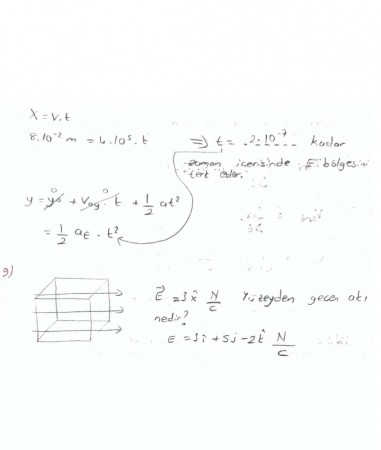 X = V.t
8.10⁻² m = 4.10⁵.t ⇒ t = 2.10⁻⁷ kadar
zaman içerisinde E bölgesini
terk eder.
y = y₀ + V₀y.t + 1/2 at²
= 1/2 a_E . t²
9)
E⃗ = 3x̂ N/C Yüzeyden geçen akı
nedir?
E = 3î + 5j - 2k̂ N/C